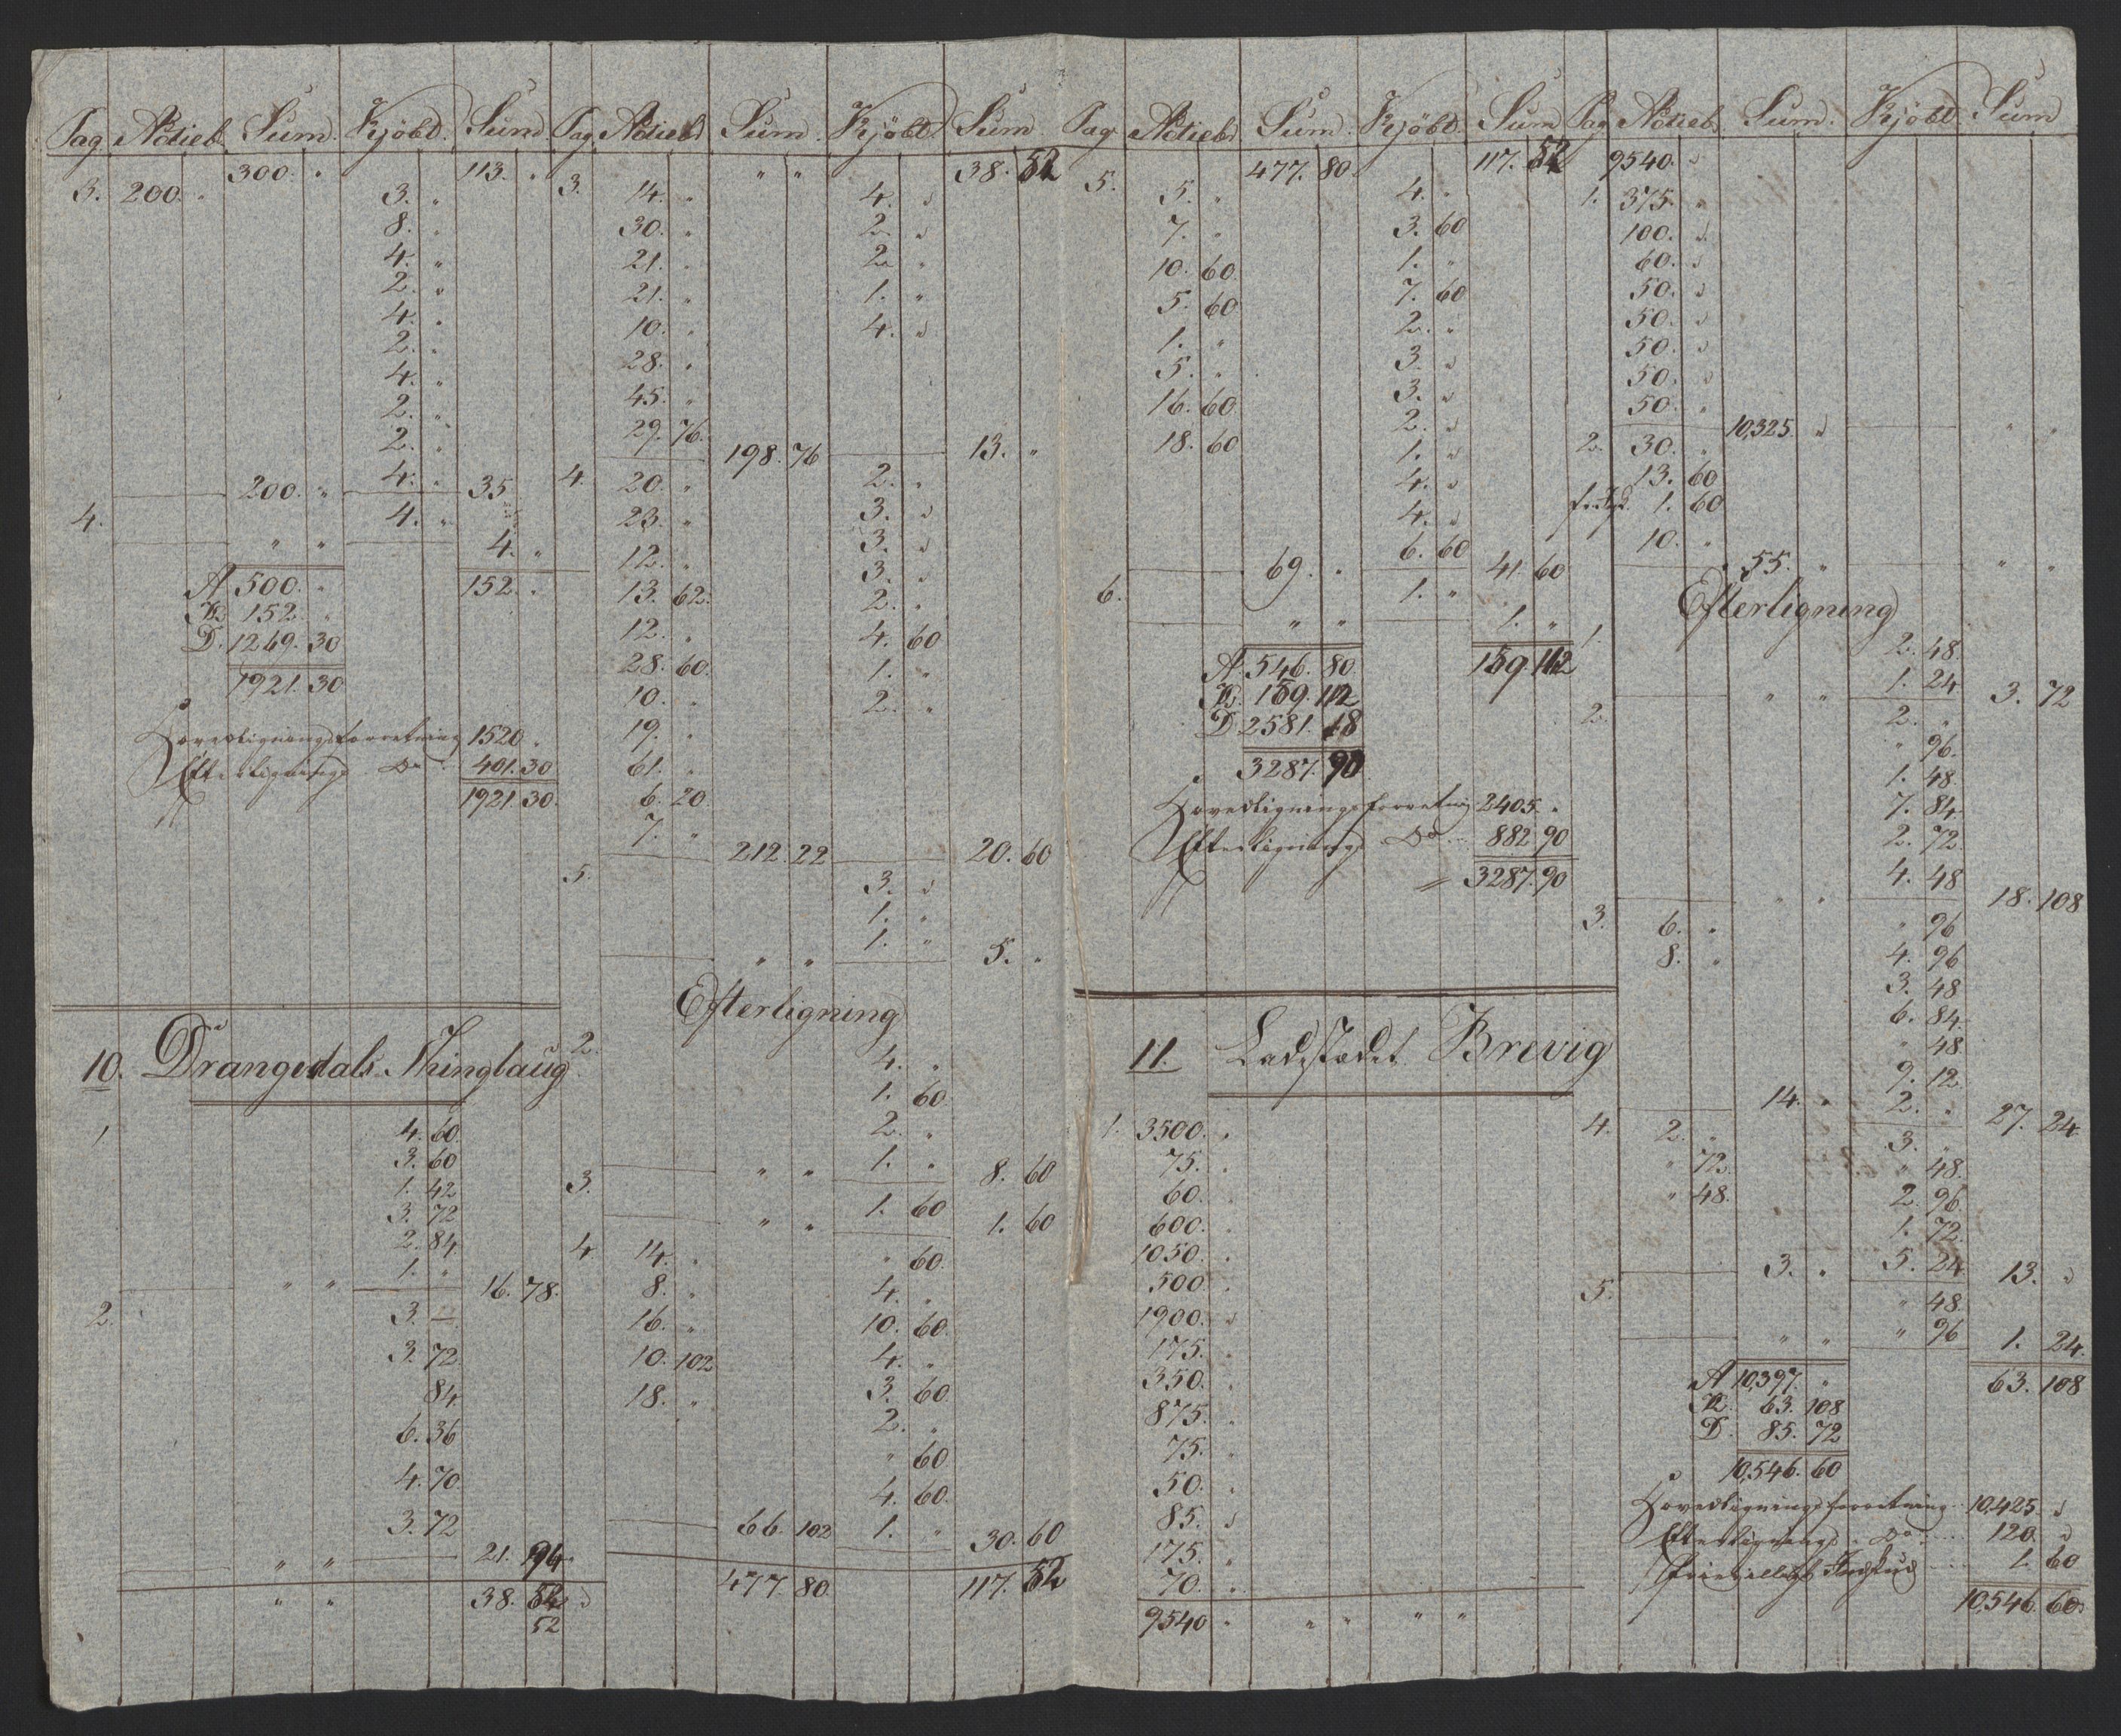 Pag. Actieb. Sum. Kjöbd. Sum
300. " 113. "
3. 200. " 3. "
8. "
4. "
2. "
4. "
2. "
4. "
2. "
2. "
4. "
200. " 35
4. 4. "
" " 4. "
A 500. " 152. "
K. 152 "
D. 1269. 30
1921. 30
Hovedlignings forretning 1520 "
Efterlignings Do 401. 30
1921. 30.
10. Drangedals Thinglaug
1 4. 60.
3. 60
1. 42
3. 72
2. 84
1. "
" " 16. 78.
2. 3. —
3. 72
84
6. 36
4. 70.
3. 72
" " 21. 94
" " 38. 52
52
Pag. Actieb. Sum. Kjöbd. Sum
" " 38. 52
3. 14. " 4. "
30. " 2. "
21. " 2. "
21. " 1. "
10. " 4. "
28. "
45. "
29. 76.
198. 76 13. "
4. 20. " 2. "
23. " 3. "
12. " 3. "
13. 62. 3. "
12. " 2. "
28. 60. 4. 60
10. " 1. "
19. " 2. "
61. "
6. 20
7. "
212. 22 20. 60
5. 3. "
1. "
1. "
" " 5. "
Efterligning
2. 4. "
1. 60
2. "
1. "
" " 8. 60
3. 1. 60
" " 1. 60
4. 14. " " 60.
8. " 4. "
16. " 10. 60
10. 102 4. "
18. " 3. 60
2. "
" 60
4. 60.
1. "
66. 102 30. 60
477. 80. 117. 52
Pag. Actieb. Sum. Kjöbd. Sum
477. 80. 117. 52
5. 5. " 4. "
7. " 3. 60
10. 60. 1. "
5. 60 7. 60
1. " 2. "
5. " 3. "
16. 60 3. "
18. 60 2. "
1. "
4. "
4. "
6. 60
69. " 41. 60
6. 1. "
" " 1. "
A. 546. 80. 159. 112
K. 159. 112
D 2581. 18
3287. 90
Hovedlignings forretning 2405. "
Efterlignings Do 882. 90
3287. 90
11. Ladestædet Brevig
1. 3500. "
75. "
60. "
600. "
1050. "
500 "
1900. "
175. "
350. "
875. "
75. "
50. "
85. "
175. "
70. "
9540 " " " " "
Pag. Actieb. Sum. Kjöbd. Sum
9540. "
1. 375. "
100. "
60. "
50. "
50. "
50. "
50. "
50. "
10,325. " " "
2. 30. "
13. 60
1. 60
10. "
55. " " "
Efterligning
1. 2. 48.
1. 24
" " 3. 72
2. 2. "
" 96.
1. 48
7. 84.
2. 72.
4. 48
" " 18. 108
3. 6. " " 96
8. " 4. 96
3. 48
6. 84.
" 48
9. 12.
2. "
14. " 27. 24
4. 2. " 3. "
" 72 " 48.
" 48. 2. 96.
1. 72.
5. 24
3. " 13. "
5. " 48.
" 96
" " 1. 24.
A 10,397. " 63. 108
K. 63. 108
D. 85. 72
10,546. 60
Hovedlignings forretning 10,425. "
Efterlignings Do 120. "
Frievilligt Indskud 1. 60
10,546. 60